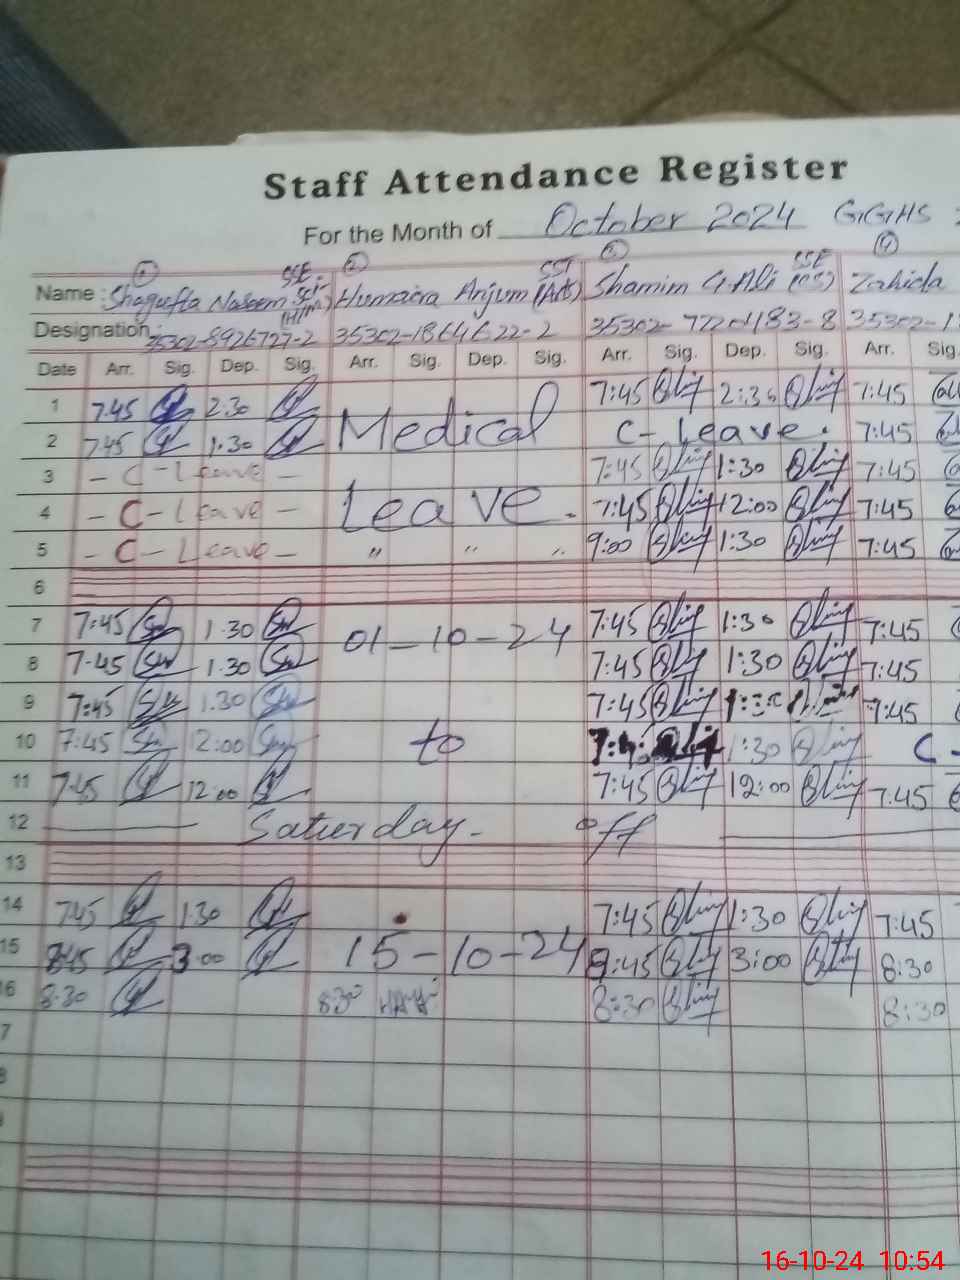 Staff Attendance Register
For the Month of October 2024 GGHS
1 2 3 4
Name: Shagufta Naseem SSE Sci- (H/m) Humaira Anjum SST (Art) Shamim G. Ali SSE (CS) Zahida
Designation: 35302-8926727-2 35302-1864622-2 35302- 83-8 35302-1
Date Arr. Sig. Dep. Sig. Arr. Sig. Dep. Sig. Arr. Sig. Dep. Sig. Arr. Sig.
1 7.45 2.30 Medical 7:45 2:30 7:45
2 7.45 1.30 C-Leave. 7:45
3 - C - Leave - 7:45 1:30 7:45
4 - C - Leave - Leave. 7:45 12:00 7:45
5 - C - Leave - " " " 9:00 1:30 7:45
6
7 7:45 1.30 01-10-24 7:45 1:30 7:45
8 7.45 1.30 7:45 1:30 7:45
9 7:45 1.30 7:45 7:45
10 7:45 2:00 to 1:30 C-
11 7.45 12:00 7:45 12:00 7.45
12 Saturday- off
13
14 7.45 1.30 7:45 1:30 7:45
15 3:00 15-10-24 :45 3:00 8:30
16 8.30 8:30 8:30 8:30
7
8
9
16-10-24 10:54